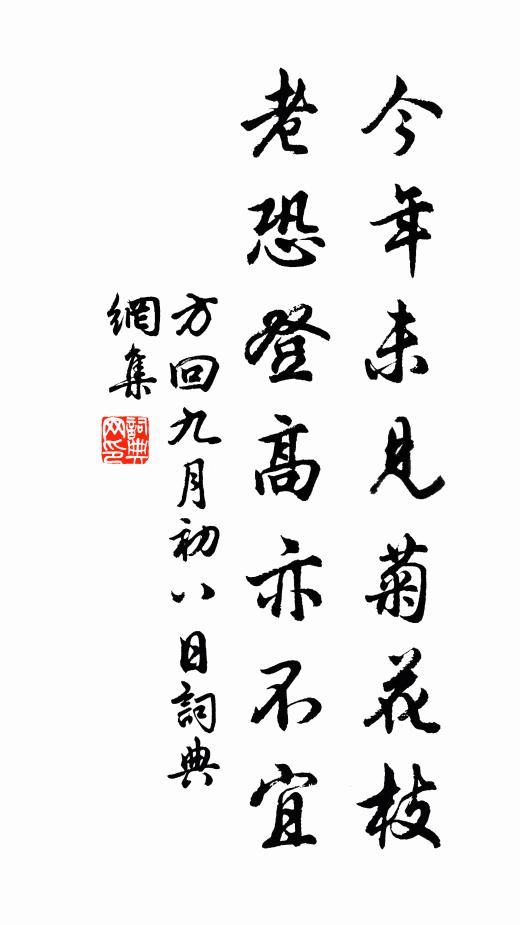 今年未見菊花枝
老恐登高亦不宜
方回九月初八日詞典
網集
詞典網印